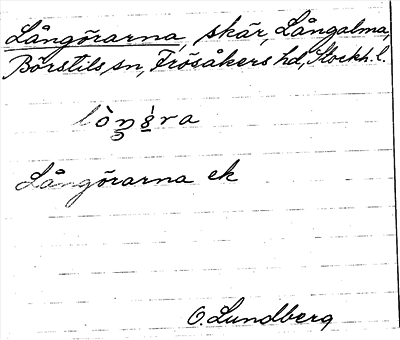 Långörarna, skär, Långalma,
Börstils sn, Frösåkers hd, Stockh. l.
Långörarna ek
O. Lundberg